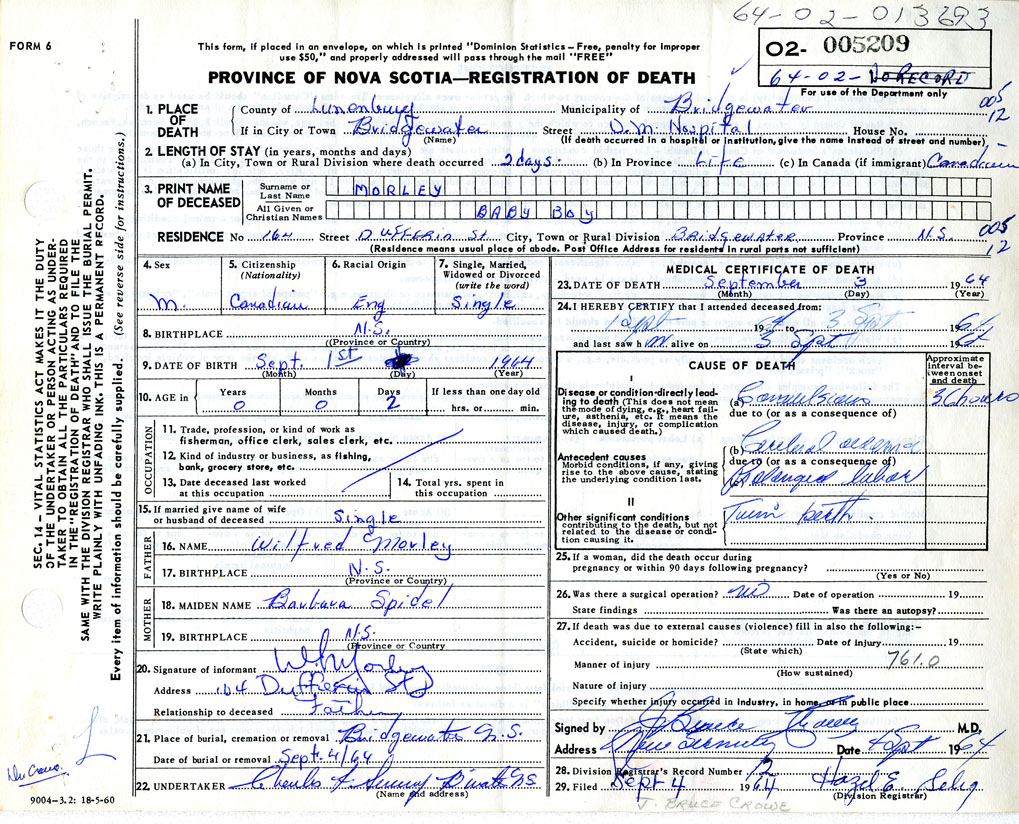 64-02-013693
FORM 6
This form, if placed in an envelope, on which is printed "Dominion Statistics – Free, penalty for improper
use $50," and properly addressed will pass through the mail "FREE"
02- 005209
64-02- NO RECORD
For use of the Department only
PROVINCE OF NOVA SCOTIA—REGISTRATION OF DEATH
005
12
1. PLACE OF DEATH
County of Lunenburg Municipality of Bridgewater
If in City or Town Bridgewater Street D.M. Hospital House No.
(Name) (If death occurred in a hospital or institution, give the name instead of street and number)
2. LENGTH OF STAY (in years, months and days)
(a) In City, Town or Rural Division where death occurred 2 days. (b) In Province Life (c) In Canada (if immigrant) Canadian
3. PRINT NAME OF DECEASED
Surname or Last Name MORLEY
All Given or Christian Names BABY Boy
RESIDENCE No 164 Street Dufferin St City, Town or Rural Division Bridgewater Province N.S.
005
12
(Residence means usual place of abode. Post Office Address for residents in rural parts not sufficient)
4. Sex M.
5. Citizenship (Nationality) Canadian
6. Racial Origin Eng.
7. Single, Married, Widowed or Divorced (write the word) Single
8. BIRTHPLACE N.S.
(Province or Country)
9. DATE OF BIRTH Sept. 1st 1964
(Month) (Day) (Year)
10. AGE in Years 0 Months 0 Days 2 If less than one day old
hrs. or min.
OCCUPATION
11. Trade, profession, or kind of work as
fisherman, office clerk, sales clerk, etc.
12. Kind of industry or business, as fishing,
bank, grocery store, etc.
13. Date deceased last worked at this occupation
14. Total yrs. spent in this occupation
15. If married give name of wife
or husband of deceased Single
FATHER
16. NAME Wilfred Morley
17. BIRTHPLACE N.S.
(Province or Country)
MOTHER
18. MAIDEN NAME Barbara Spidel
19. BIRTHPLACE N.S.
(Province or Country
20. Signature of informant W H Morley
Address 164 Dufferin St
Relationship to deceased Father
21. Place of burial, cremation or removal Bridgewater N.S.
Date of burial or removal Sept. 4/64
22. UNDERTAKER Charles F
(Name and address)
MEDICAL CERTIFICATE OF DEATH
23. DATE OF DEATH September 3 1964
(Month) (Day) (Year)
24. I HEREBY CERTIFY that I attended deceased from:
1 Sept 1964 to 3 Sept 1964
and last saw him alive on 3 Sept 1964
CAUSE OF DEATH
Approximate interval between onset and death
I
Disease or condition directly leading to death (This does not mean the mode of dying, e.g., heart failure, asthenia, etc. It means the disease, injury, or complication which caused death.)
(a) Convulsions 36 hours
due to (or as a consequence of)
Antecedent causes
Morbid conditions, if any, giving rise to the above cause, stating the underlying condition last.
(b) Cerebral oedema
due to (or as a consequence of)
(c) Prolonged labor
II
Other significant conditions
contributing to the death, but not related to the disease or condition causing it.
Twin birth.
25. If a woman, did the death occur during
pregnancy or within 90 days following pregnancy?
(Yes or No)
26. Was there a surgical operation? no Date of operation 19
State findings Was there an autopsy?
27. If death was due to external causes (violence) fill in also the following:–
Accident, suicide or homicide? Date of injury 19
(State which)
Manner of injury 761.0
(How sustained)
Nature of injury
Specify whether injury occurred in industry, in home, or in public place
Signed by J Bruce Crowe M.D.
Address Date 4 Sept 1964
28. Division Registrar's Record Number 12
29. Filed Sept 4 1964 Hazel E. Selig
(Division Registrar)
J. BRUCE CROWE
SEC. 14 – VITAL STATISTICS ACT MAKES IT THE DUTY
OF THE UNDERTAKER OR PERSON ACTING AS UNDER-
TAKER TO OBTAIN ALL THE PARTICULARS REQUIRED
IN THE "REGISTRATION OF DEATH" AND TO FILE THE
SAME WITH THE DIVISION REGISTRAR WHO SHALL ISSUE THE BURIAL PERMIT.
WRITE PLAINLY WITH UNFADING INK. THIS IS A PERMANENT RECORD.
Every item of information should be carefully supplied. (See reverse side for instructions.)
Dr Crowe.
9004–3.2: 18-5-60